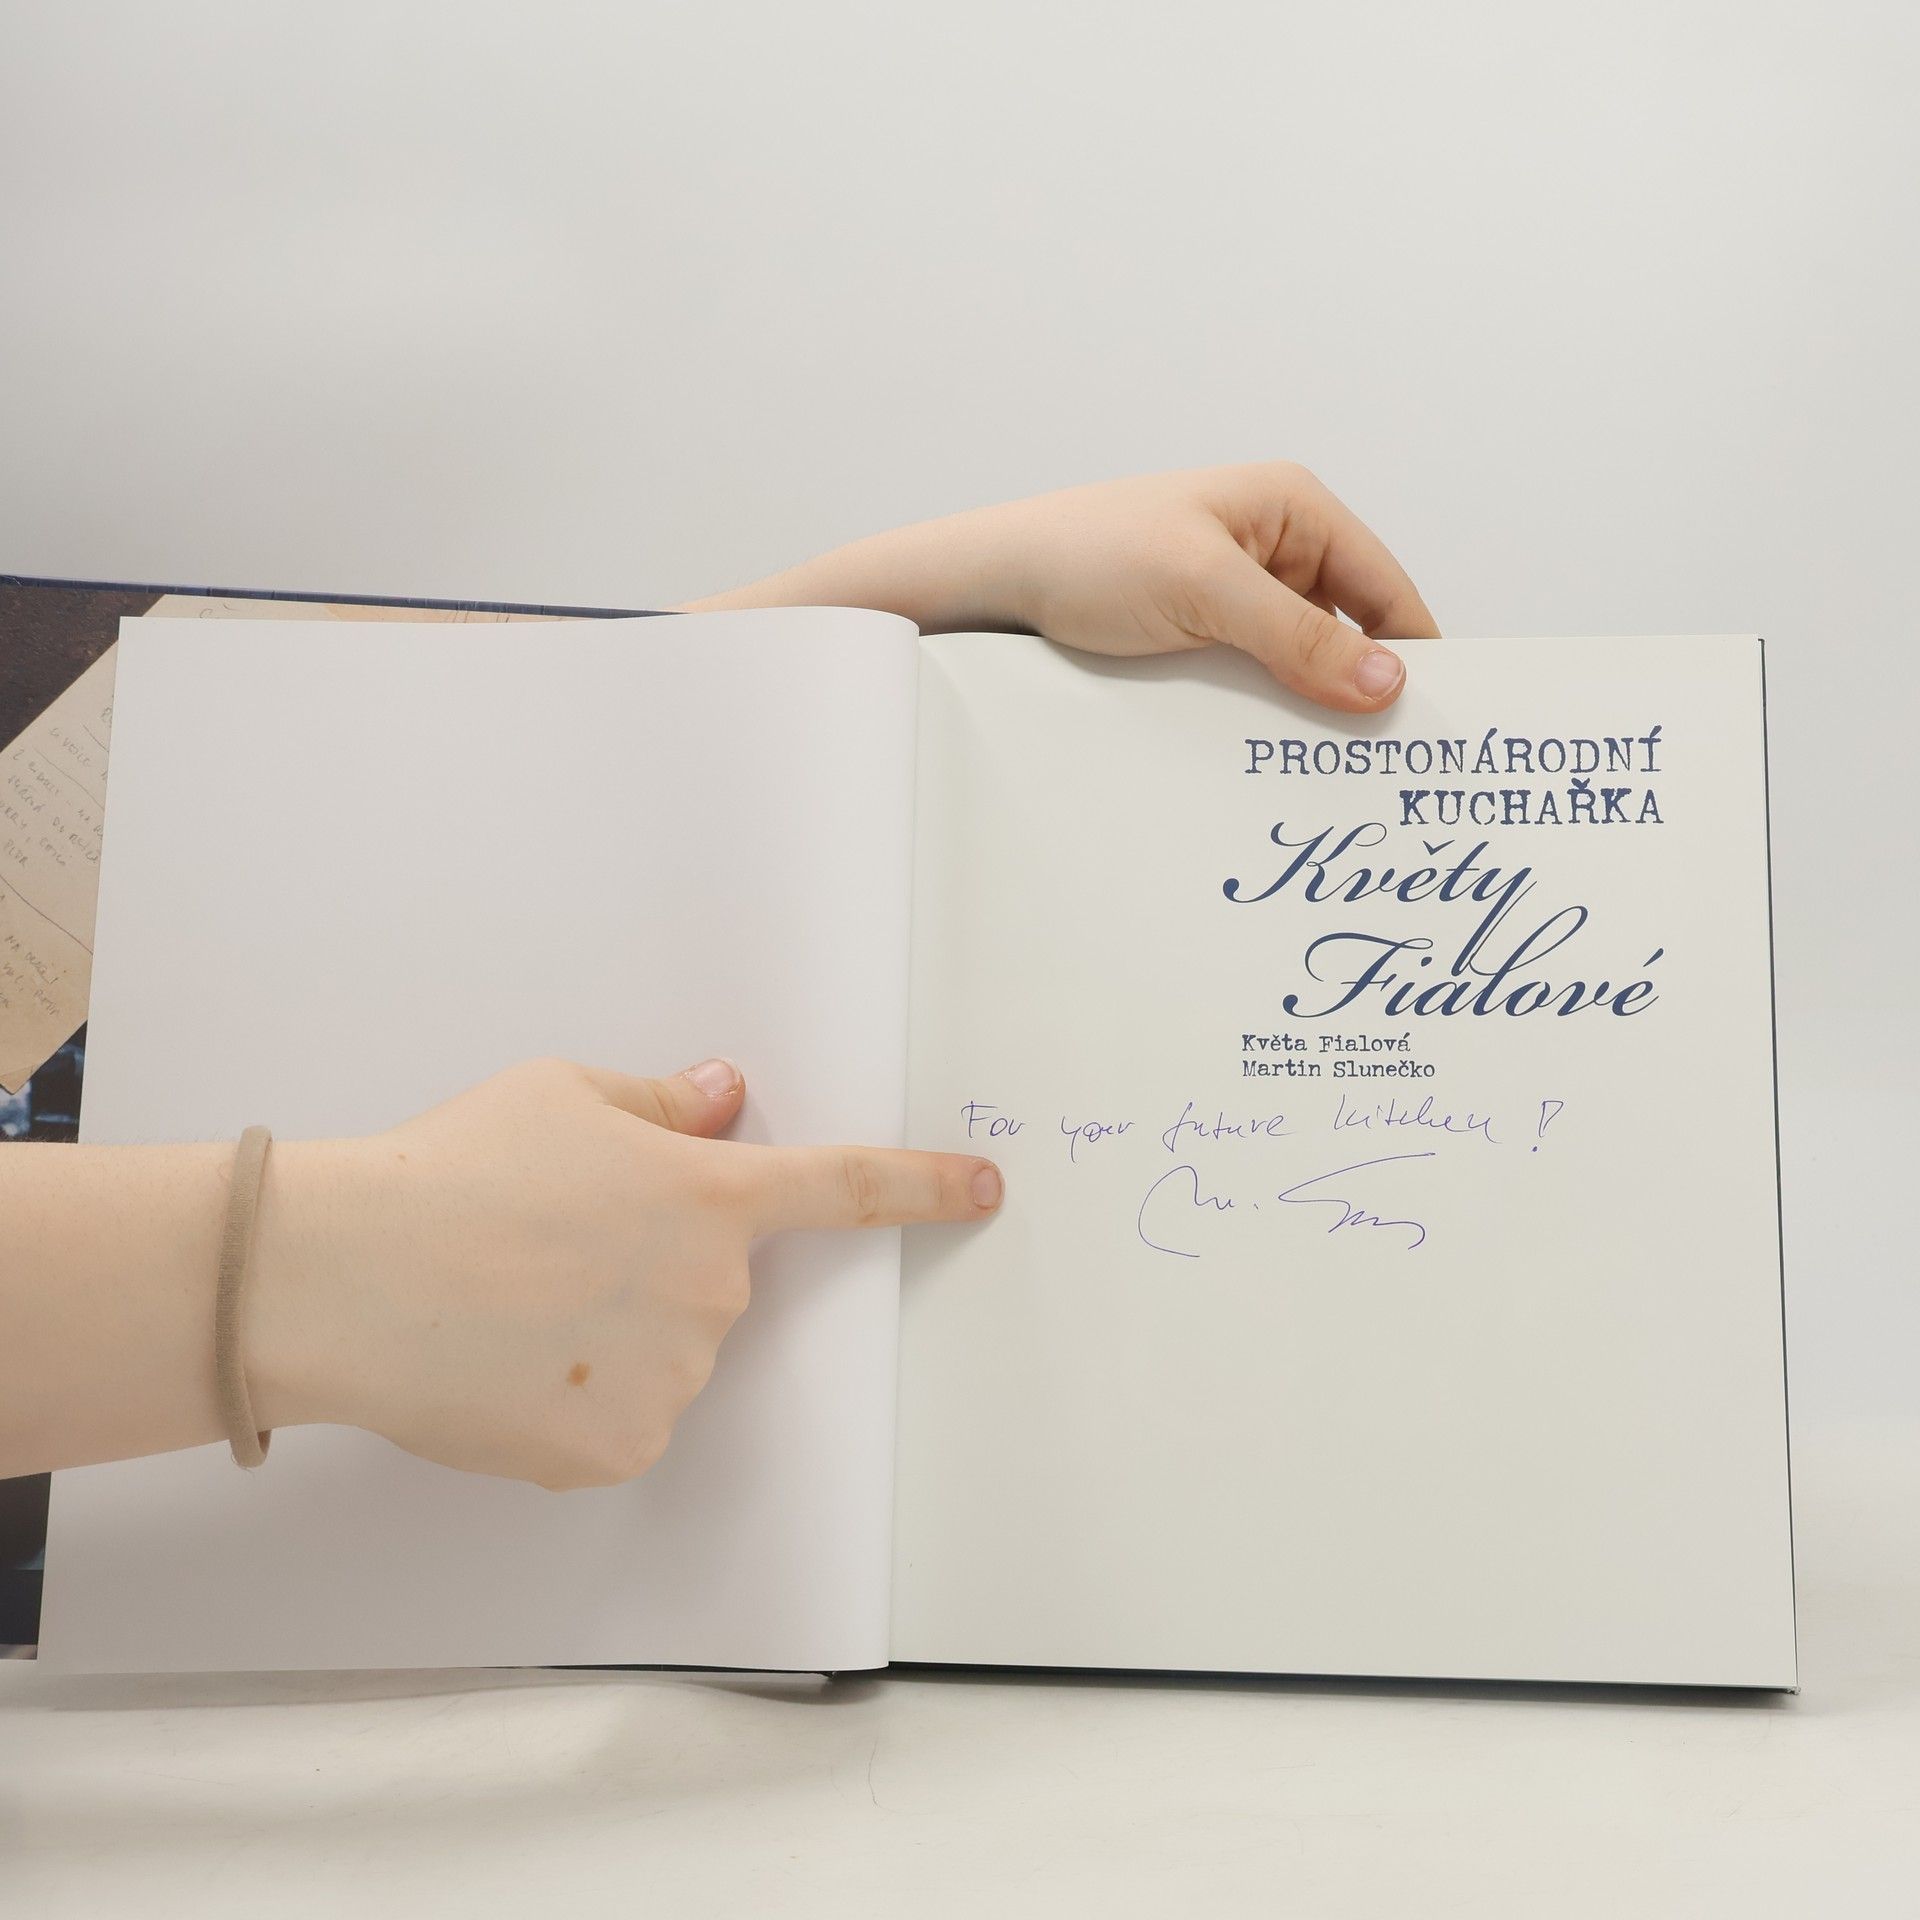 PROSTONÁRODNÍ
KUCHAŘKA
Květy
Fialové
Květa Fialová
Martin Slunečko
For your future kitchen!